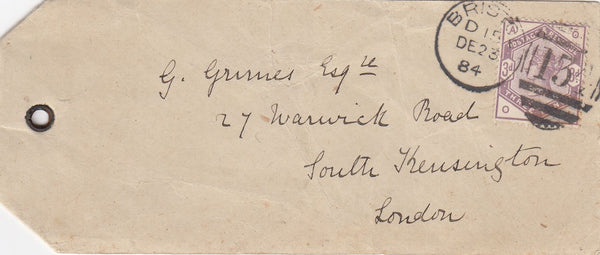 G. Grimes Esqre
27 Warwick Road
South Kensington
London
BRIST
D 15
DE 23
84
3d
15